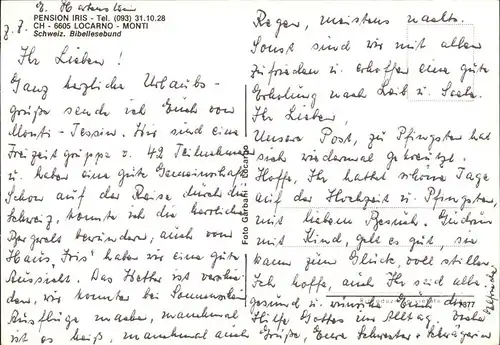 z. Z. E. Hartenstein
PENSION IRIS - Tel (093) 31.10.28
CH - 6605 LOCARNO - MONTI
Schweiz. Bibellesebund
Ihr Lieben!
Ganz herzliche Urlaubs-
grüße sende ich Euch von
Monti-Tessin. Wir sind eine
Freizeitgruppe v. 42 Teilnehmer
u. haben eine gute Gemeinschaft.
Schon auf der Reise durch die
Schweiz, konnte ich die herrliche
Bergwelt bewundern, auch vom
Haus "Iris" haben wir eine gute
Aussicht. Das Wetter ist verschie-
den, wir konnten bei Sonnenschein
Ausflüge machen, manchmal
ist es heiß, manchmal auch
Regen, meistens nachts.
Sonst sind wir mit allem
zufrieden u. erhoffen eine gute
Erholung nach Leib u. Seele.
Ihr Lieben,
Unsere Post, zu Pfingsten hat
sich wiedermal gekreuzt.
Hoffe, Ihr hattet schöne Tage
auf der Hochzeit u. Pfingsten,
mit liebem Besuch. Gudrun
mit Kind, geht es gut, sie
kann zum Glück, voll stillen.
Ich hoffe, auch Ihr seid alle
gesund u. wünsche Euch des
Hilfe Gottes im Alltag. Viele
Grüße, Eure Schwester + Schwägerin
Elfriede
Foto Garbani - Locarno
7877